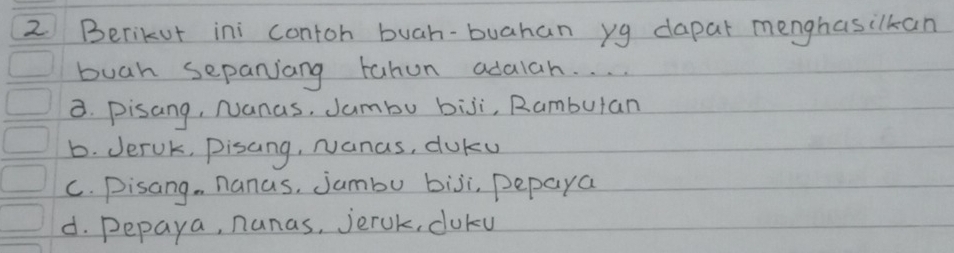 2 Berikut ini contoh buah-buahan yg dapat menghasilkan
buah sepanjang tahun adalah....
a. Pisang, Nanas, Jambu biji, Rambutan
b. Jeruk, Pisang, Nanas, duku
c. Pisang, nanas, jambu biji, Pepaya
d. Pepaya, nanas, jeruk, duku